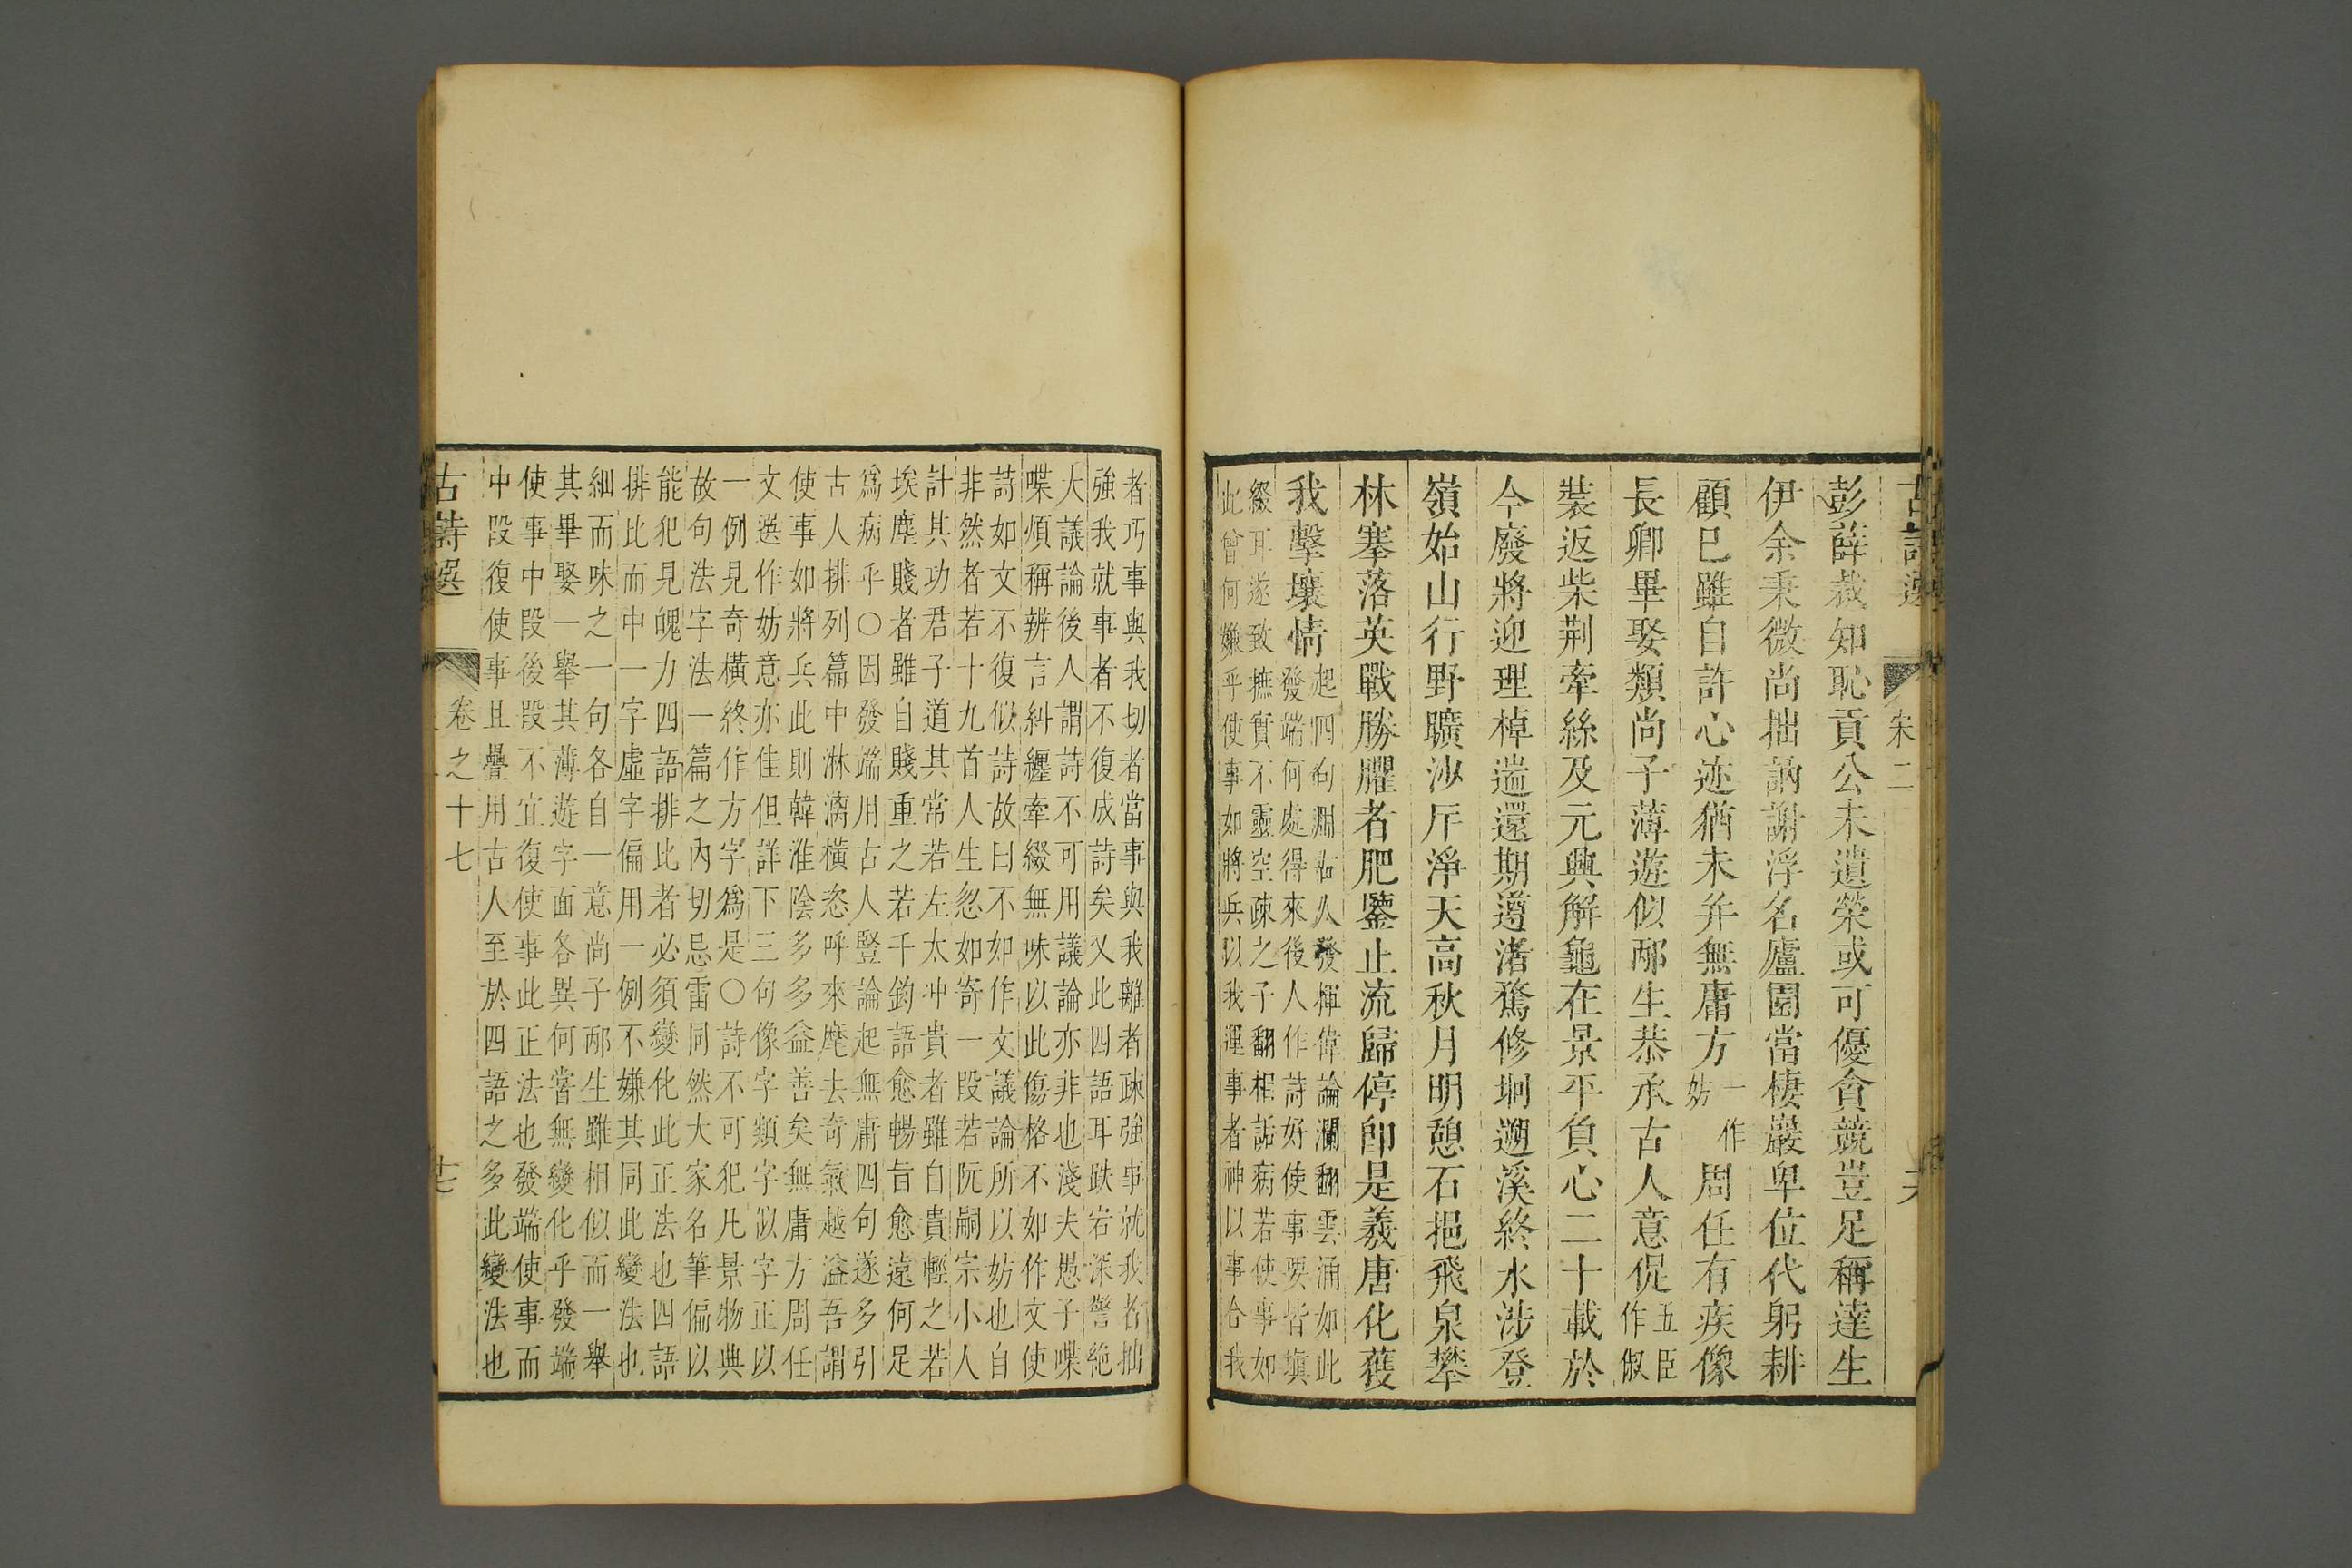 古詩選
宋二
彭薛裁知恥貢公未遺榮或可優貪競豈足稱達生
伊余秉微尚拙訥謝浮名廬園當棲巖卑位代躬耕
顧已雖自許心迹猶未并無庸方一作妨周任有疾像
長卿畢娶類尚子薄遊似邴生恭承古人意促五臣作俶
裝返柴荆牽絲及元興解龜在景平負心二十載於
今廢將迎理棹遄還期遵渚騖修坰遡溪終水涉登
嶺始山行野曠沙岸淨天高秋月明憩石挹飛泉攀
林搴落英戰勝臞者肥鑒止流歸停卽是羲唐化獲
我擊壤情
起四句淵右人發揮偉論瀾翻雲涌如此
發端何處得來後人作詩好使事要皆塡
綴耳遂致摭實不靈空疎之子翻相詬病若使事如
此曾何嫌乎使事如將兵以我運事者神以事合我
者巧事與我切者當事與我離者疎強事就我者拙
強我就事者不復成詩矣又此四語耳跌宕深警絶
大議論後人謂詩不可用議論亦非也淺夫愚子喋
喋煩稱辨言糾纒牽綴無味以此傷格不如作文使
詩如文不復似詩故曰不如作文議論所以妨也自
非然者若十九首人生忽如寄一段若阮嗣宗小人
計其功君子道其常若左太冲貴者雖自貴輕之若
埃塵賤者雖自賤重之若千鈞語愈暢旨愈遠何足
爲病乎○因發端用古人豎論起無庸四句遂多引
古人排列篇中淋漓橫恣呼來麾去奇氣越溢吾謂
使事如將兵此則韓淮陰多多益善矣無庸方周任
文選作妨意亦佳但詳下三句像字類字似字正以
一例見奇橫終作方字爲是○詩不可犯凡景物典
故句法字法一篇之內切忌雷同然大家名筆偏以
能犯見魄力四語排比者必須變化此正法也四語
排比而中一字虛字偏用一例不嫌其同此變法也
細而味之一句各自一意尚子邴生雖相似而一舉
其畢娶一舉其薄遊字面各異何嘗無變化乎發端
使事中段後段不宜復使事此正法也發端使事而
中段復使事且疊用古人至於四語之多此變法也
古詩選
卷之十七